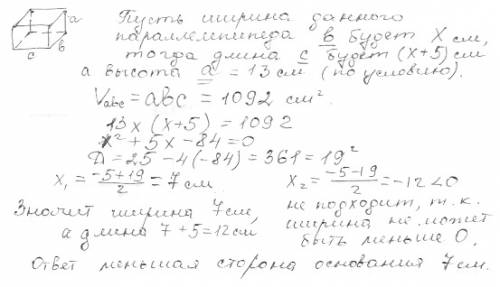 a
в
с
Пусть ширина данного
параллелепипеда в будет х см,
тогда длина с будет (х+5) см
а высота a = 13 см (по условию).
Vabc = abc = 1092 см².
13x (x+5) = 1092
x² + 5x - 84 = 0
D = 25 - 4(-84) = 361 = 19²
x₁ = (-5+19)/2 = 7 см. x₂ = (-5-19)/2 = -12 < 0
Значит ширина 7 см,
а длина 7 + 5 = 12 см
не подходит, т.к.
ширина не может
быть меньше 0.
Ответ меньшая сторона основания 7 см.